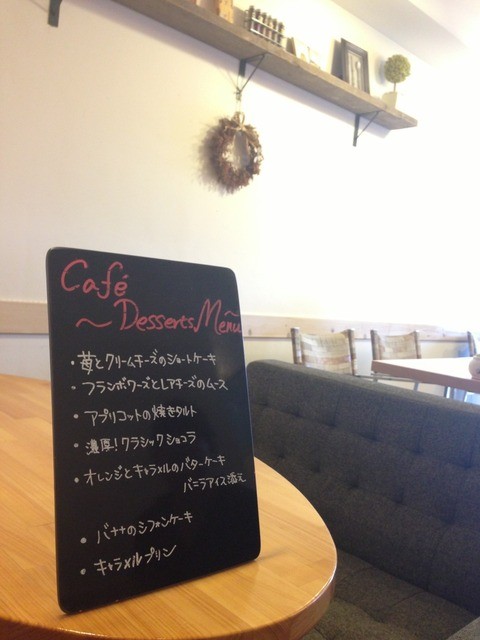 Café
~Desserts Menu~
・苺とクリームチーズのショートケーキ
・フランボワーズとレアチーズのムース
・アプリコットの焼きタルト
・濃厚!クラシックショコラ
・オレンジとキャラメルのバターケーキ
バニラアイス添え
・バナナのシフォンケーキ
・キャラメルプリン